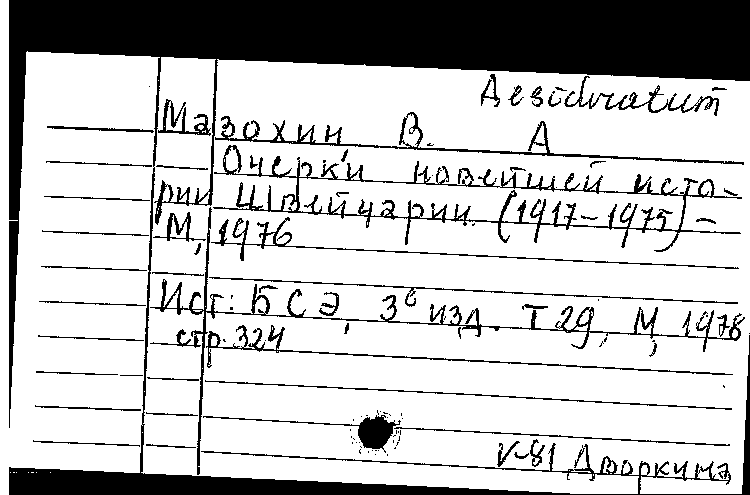 Desideratum
Мазохин, В. А
Очерки новейшей исто-
рии Швейцарии. (1917-1975) -
М, 1976
Ист: БСЭ, 3е изд. Т 29, М, 1978
стр. 324
V-81 Дворкина